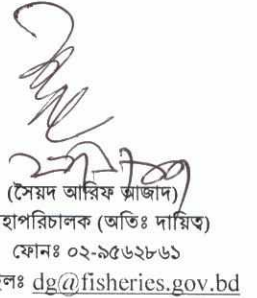 (সৈয়দ আরিফ আজাদ)
হাপরিচালক (অতিঃ দায়িত্ব)
ফোনঃ ০২-৯৫৬২৮৬১
লঃ dg@fisheries.gov.bd